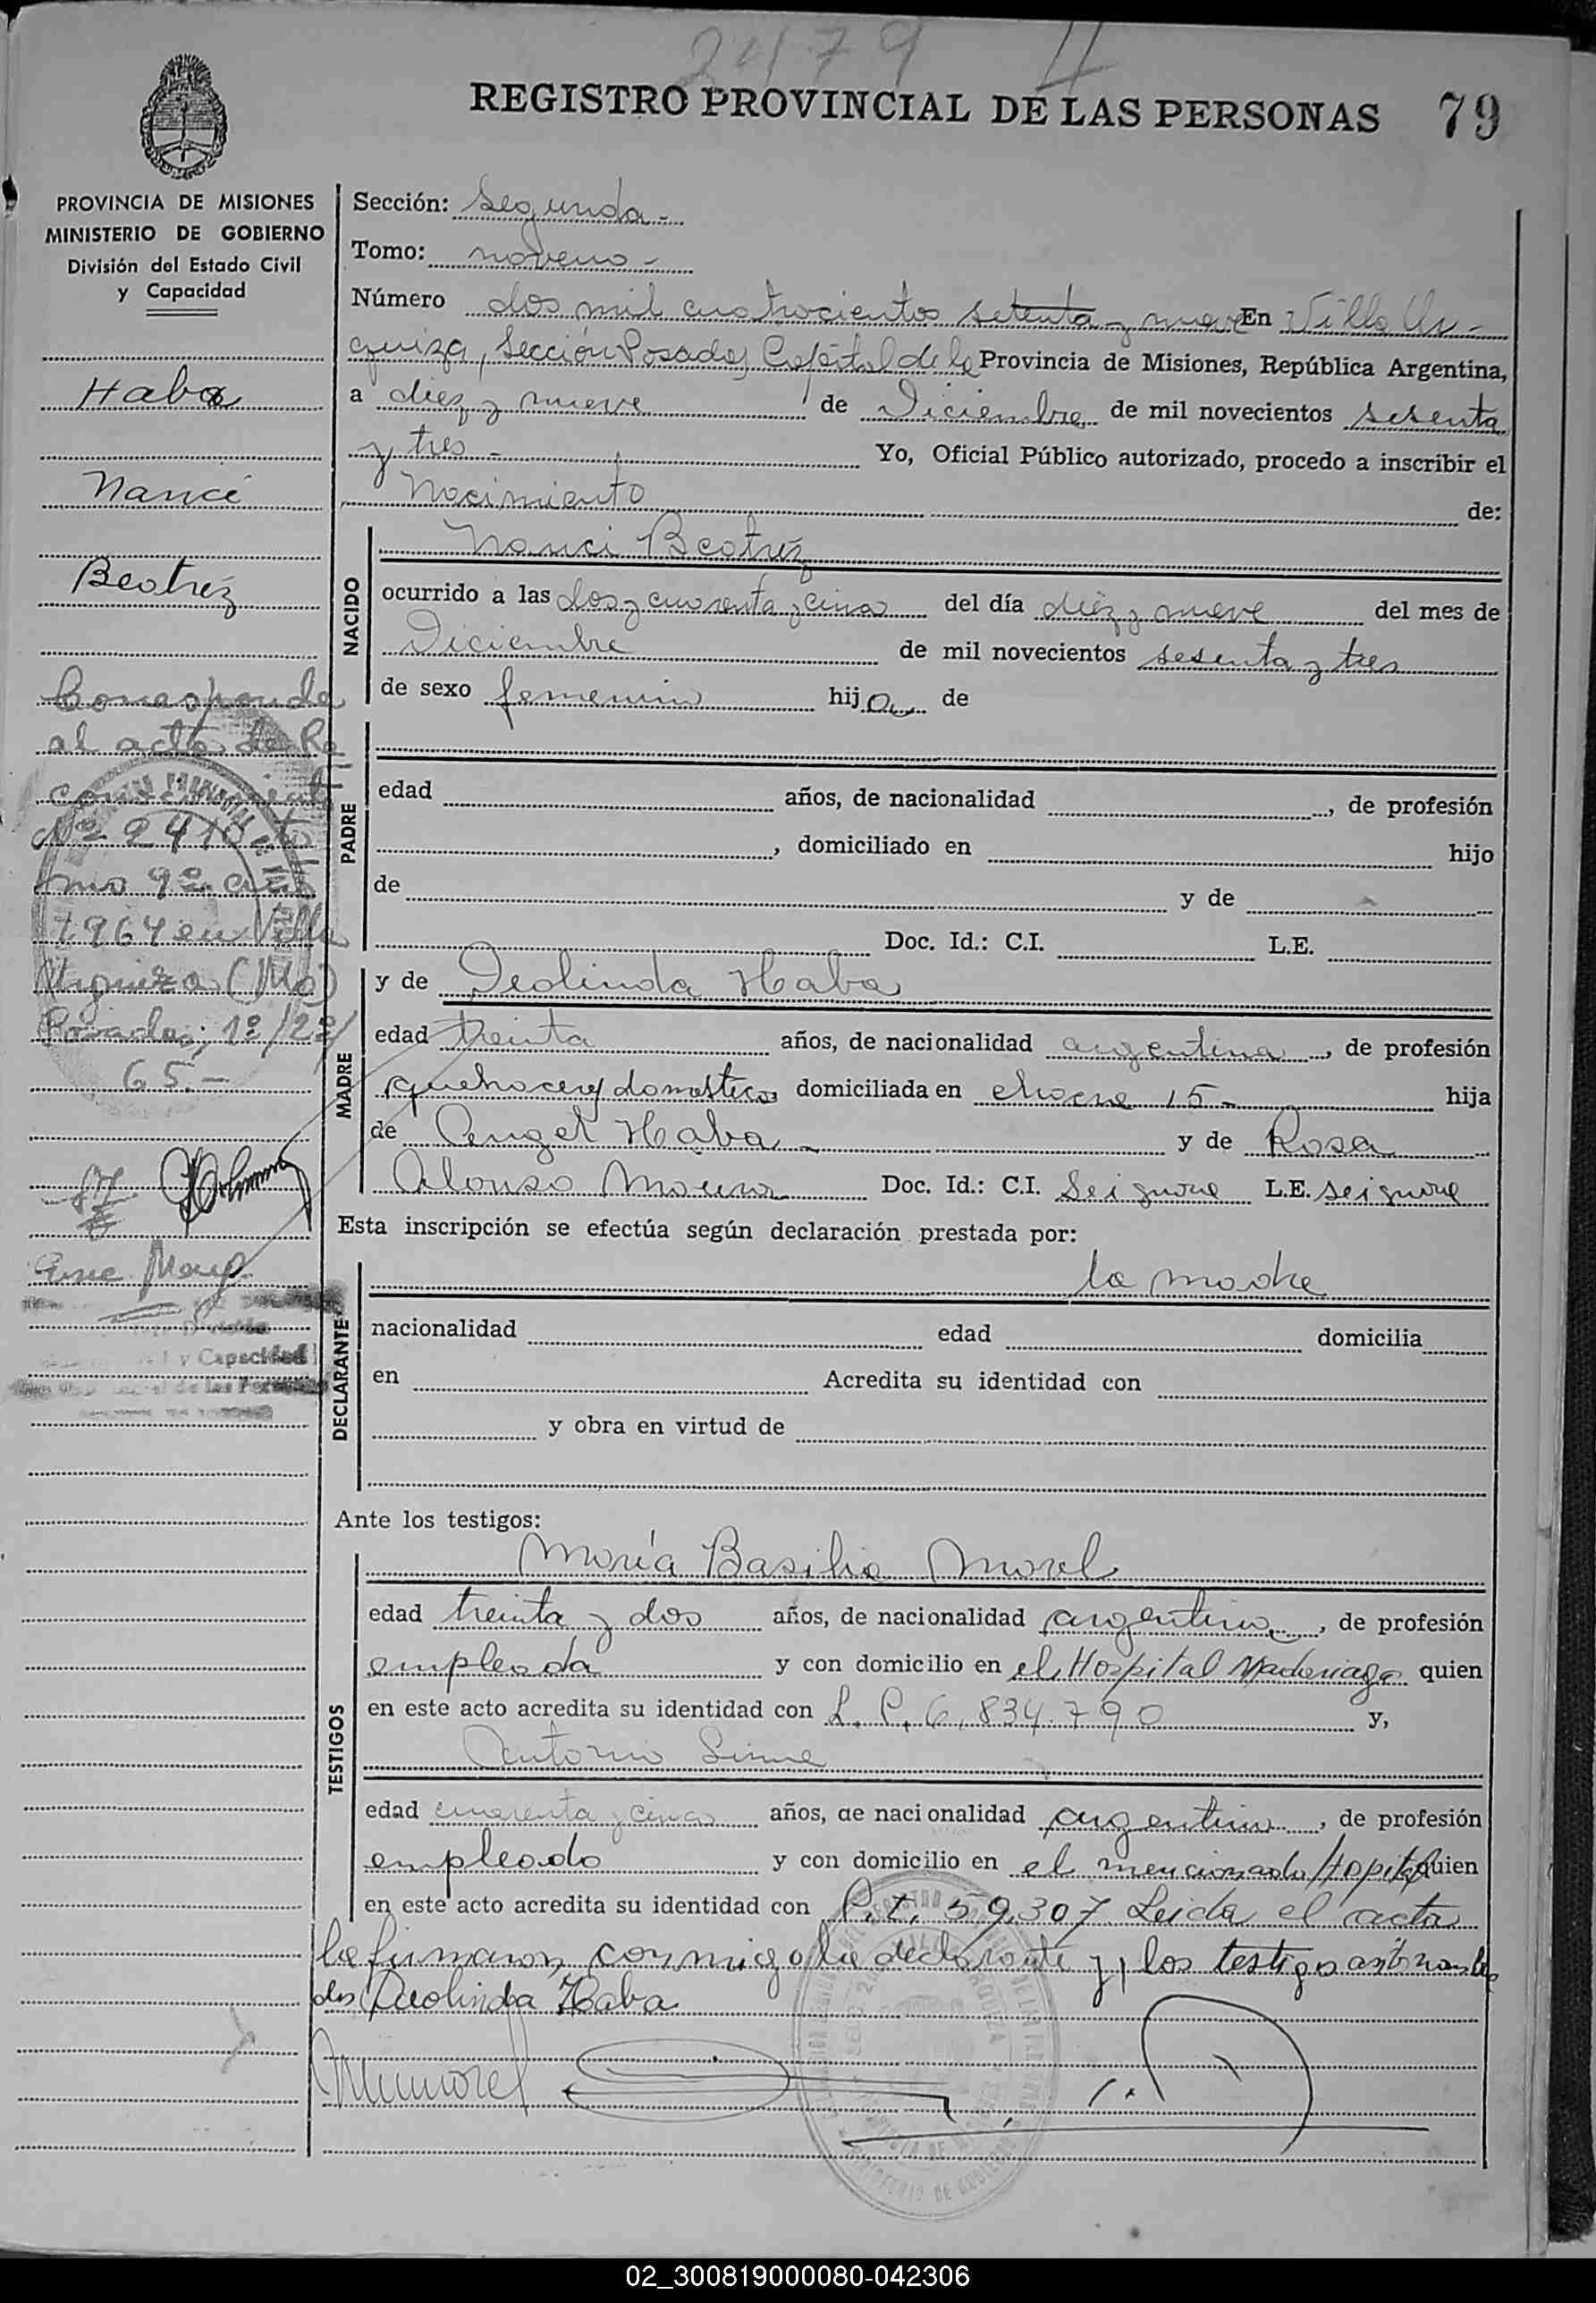 2479
REGISTRO PROVINCIAL DE LAS PERSONAS 79
PROVINCIA DE MISIONES
MINISTERIO DE GOBIERNO
División del Estado Civil
y Capacidad
Haba
Nanci
Beatriz
Corresponde
al acta de Re
Nº 2410 to
mo 9º año
1964 en Villa
Urquiza (Mo)
Posadas; 1º/2º/
65.-
y Capacidad
Sección: Segunda -
Tomo: noveno -
Número dos mil cuatrocientos setenta y nueve En Villa Ur-
quiza, Sección Posadas Capital de la Provincia de Misiones, República Argentina,
a diez y nueve de Diciembre de mil novecientos sesenta
y tres - Yo, Oficial Público autorizado, procedo a inscribir el
Nacimiento de:
NACIDO
Nanci Beatriz
ocurrido a las dos y cuarenta y cinco del día diez y nueve del mes de
Diciembre de mil novecientos sesenta y tres
de sexo femenino hija de
PADRE
edad años, de nacionalidad , de profesión
, domiciliado en hijo
de y de
Doc. Id.: C.I. L.E.
MADRE
y de Deolinda Haba
edad treinta años, de nacionalidad argentina , de profesión
quehaceres domestico domiciliada en chacra 15 - hija
de Angel Haba - y de Rosa
Alonso Moura Doc. Id.: C.I. Se ignora L.E. se ignora
Esta inscripción se efectúa según declaración prestada por:
DECLARANTE
la madre
nacionalidad edad domicilia
en Acredita su identidad con
y obra en virtud de
Ante los testigos:
TESTIGOS
María Basilia Morel
edad treinta y dos años, de nacionalidad argentina , de profesión
empleada y con domicilio en el Hospital Madariaga quien
en este acto acredita su identidad con L. C. 6.834.790 y,
Antonio
edad cuarenta y cinco años, de nacionalidad argentino , de profesión
empleado y con domicilio en el mencionado Hopital quien
en este acto acredita su identidad con 59.307 Leida el acta
la firmaron conmigo la declarante y los testigos
Deolinda Haba
02_300819000080-042306